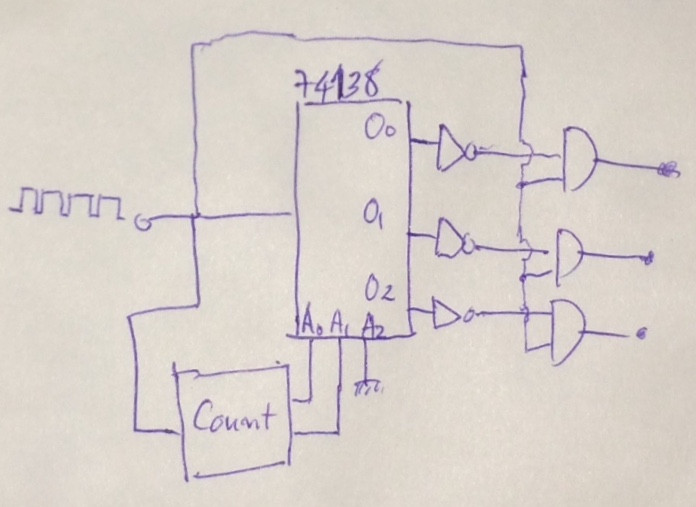 74138
O0
O1
O2
A0 A1 A2
Count